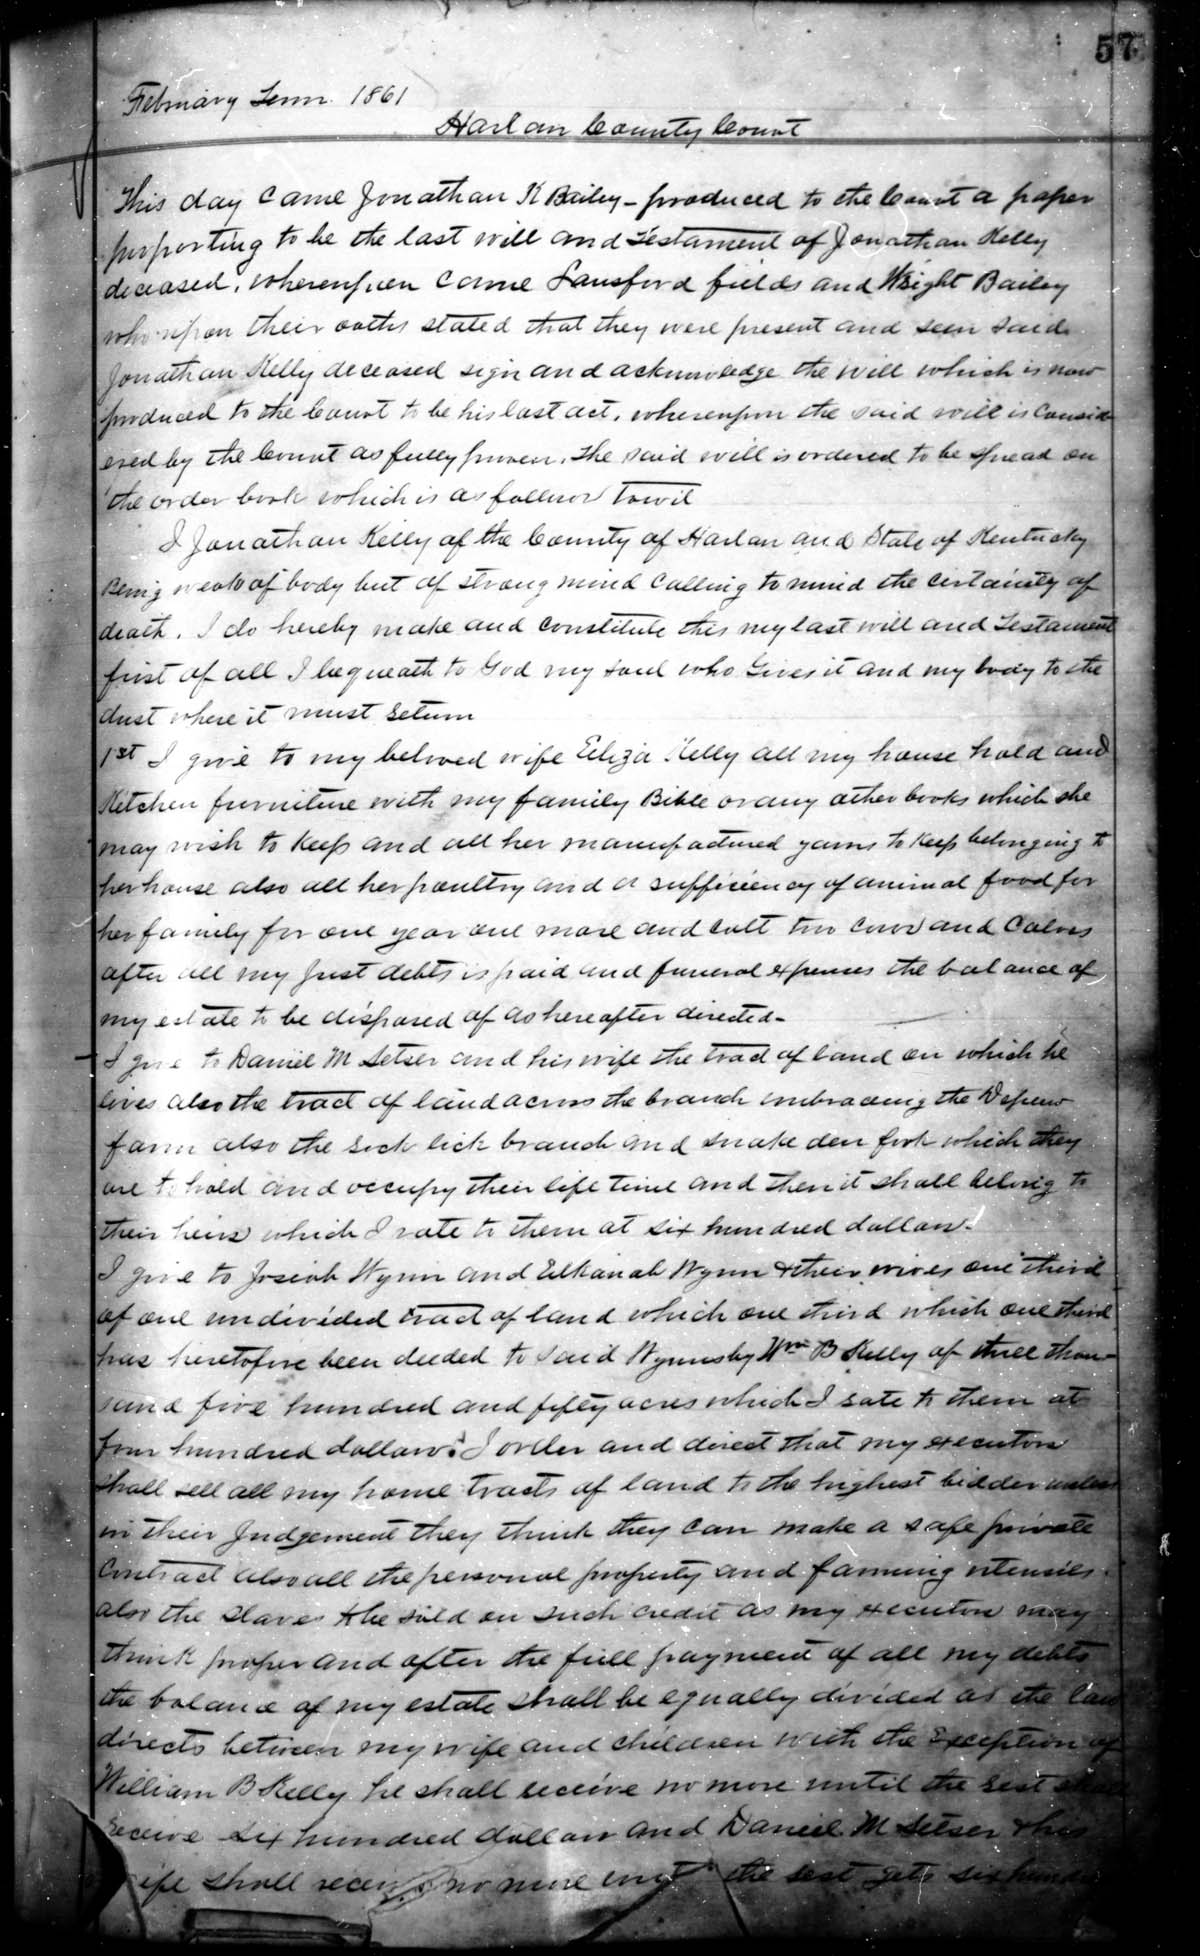 57
February Term 1861
Harlan County Court
This day came Jonathan K Bailey - produced to the Court a paper
purporting to be the last will and testament of Jonathan Kelly
deceased, whereupon came Lansford fields and Wright Bailey
who upon their oaths stated that they were present and seen said
Jonathan Kelly deceased sign and acknowledge the will which is now
produced to the Court to be his last act, whereupon the said will is Consid-
ered by the Court as fully proven, the said will is ordered to be spread on
the order book which is as follows towit
I Jonathan Kelly of the County of Harlan and State of Kentucky
Being weak of body but of strong mind Calling to mind the certainty of
death. I do hereby make and constitute this my last will and Testament
first of all I bequeath to God my soul who Gives it and my body to the
dust where it must return
1st I give to my beloved wife Eliza Kelly all my house hold and
Kitchen furniture with my family Bible or any other books which she
may wish to keep and all her manufactured yarns to keep belonging to
her house also all her poultry and a sufficiency of animal food for
her family for one year one mare and colt two cows and Calves
after all my Just debts is paid and funeral expenses the balance of
my estate to be disposed of as hereafter directed -
I give to Daniel M Setser and his wife the tract of land on which he
lives also the tract of land across the branch embracing the
farm also the lick branch and snake den fork which they
are to hold and occupy their life time and then it shall belong to
their heirs which I rate to them at six hundred dollars.
I give to Josiah Wynn and Elkanah Wynn & their wives one third
of one undivided tract of land which one third which one third
has heretofore been deeded to said Wynns by Wm B Kelly of three thou-
sand five hundred and fifty acres which I rate to them at
four hundred dollars. I order and direct that my executors
shall sell all my home tracts of land to the highest bidder unless
in their Judgement they think they can make a safe private
Contract also all the personal property and farming utensils
also the slaves to be sold on such credit as my executors may
think proper and after the full payment of all my debts
the balance of my estate shall be equally divided as the law
directs between my wife and children with the Exception of
William B Kelly he shall receive no more until the rest
receive six hundred dollars and Daniel M Setser & his
wife shall receive no more the rest gets six